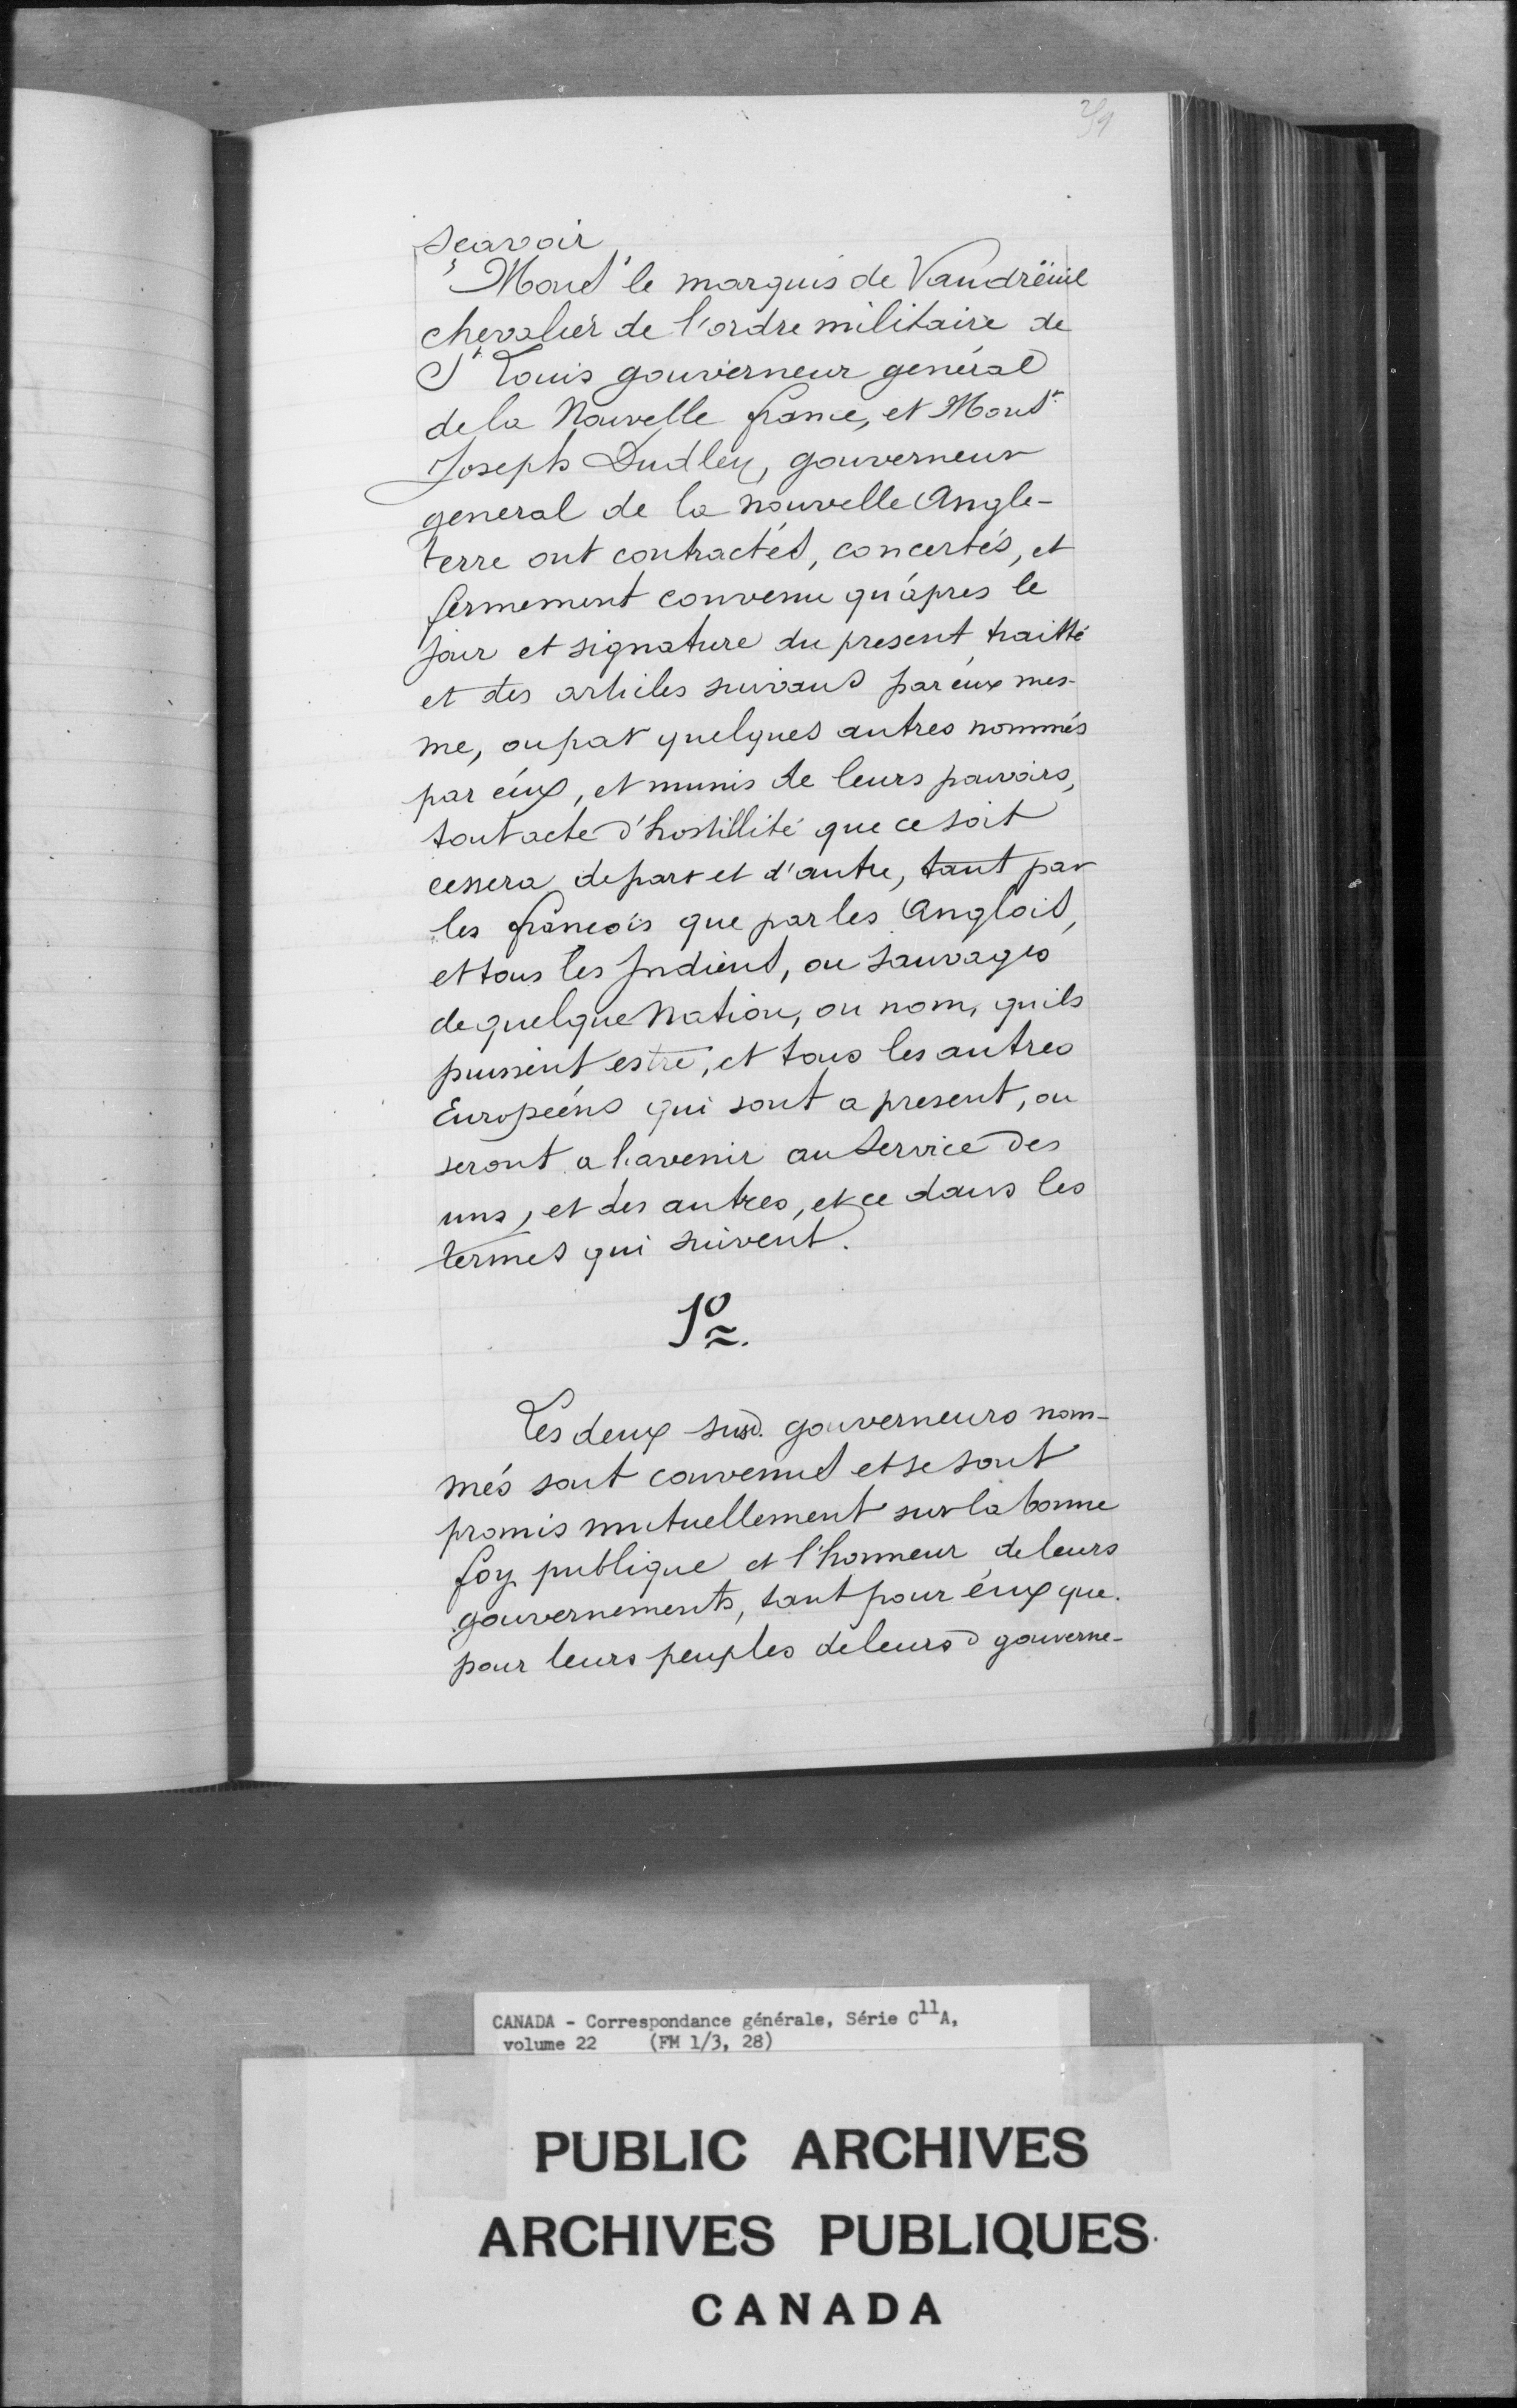 scavoir,
Mons.r le marquis de Vaudrëuil
chevalier de l'ordre militaire de
St Louis gouverneur general
de la Nouvelle france, et Mons.r
Joseph Dudley, gouverneur
general de la nouvelle Angle-
terre ont contractés, concertés, et
fermement convenu qu'apres le
jour et signature du present traitté
et des articles suivans par éux mes-
me, ou par quelques autres nommés
par éux, et munis de leurs pouvoirs,
tout acte d'hostillité que ce soit
cessera de part et d'autre, tant par
les francois que par les Anglois,
et tous les Indiens, ou sauvages
de quelque Nation, ou nom, quils
puissent estre, et tous les autres
Européens qui sont a present, ou
seront a l'avenir au service des
uns, et des autres, et ce dans les
termes qui suivent.
1o.
Les deux susd. gouverneurs nom-
més sont convenus et se sont
promis mutuellement sur la bonne
foy publique et l'honneur de leurs
gouvernements, tant pour éux que
pour leurs peuples de leursd gouverne-
CANADA - Correspondance générale, Série C11A,
volume 22 (FM 1/3, 28)
PUBLIC ARCHIVES
ARCHIVES PUBLIQUES
CANADA